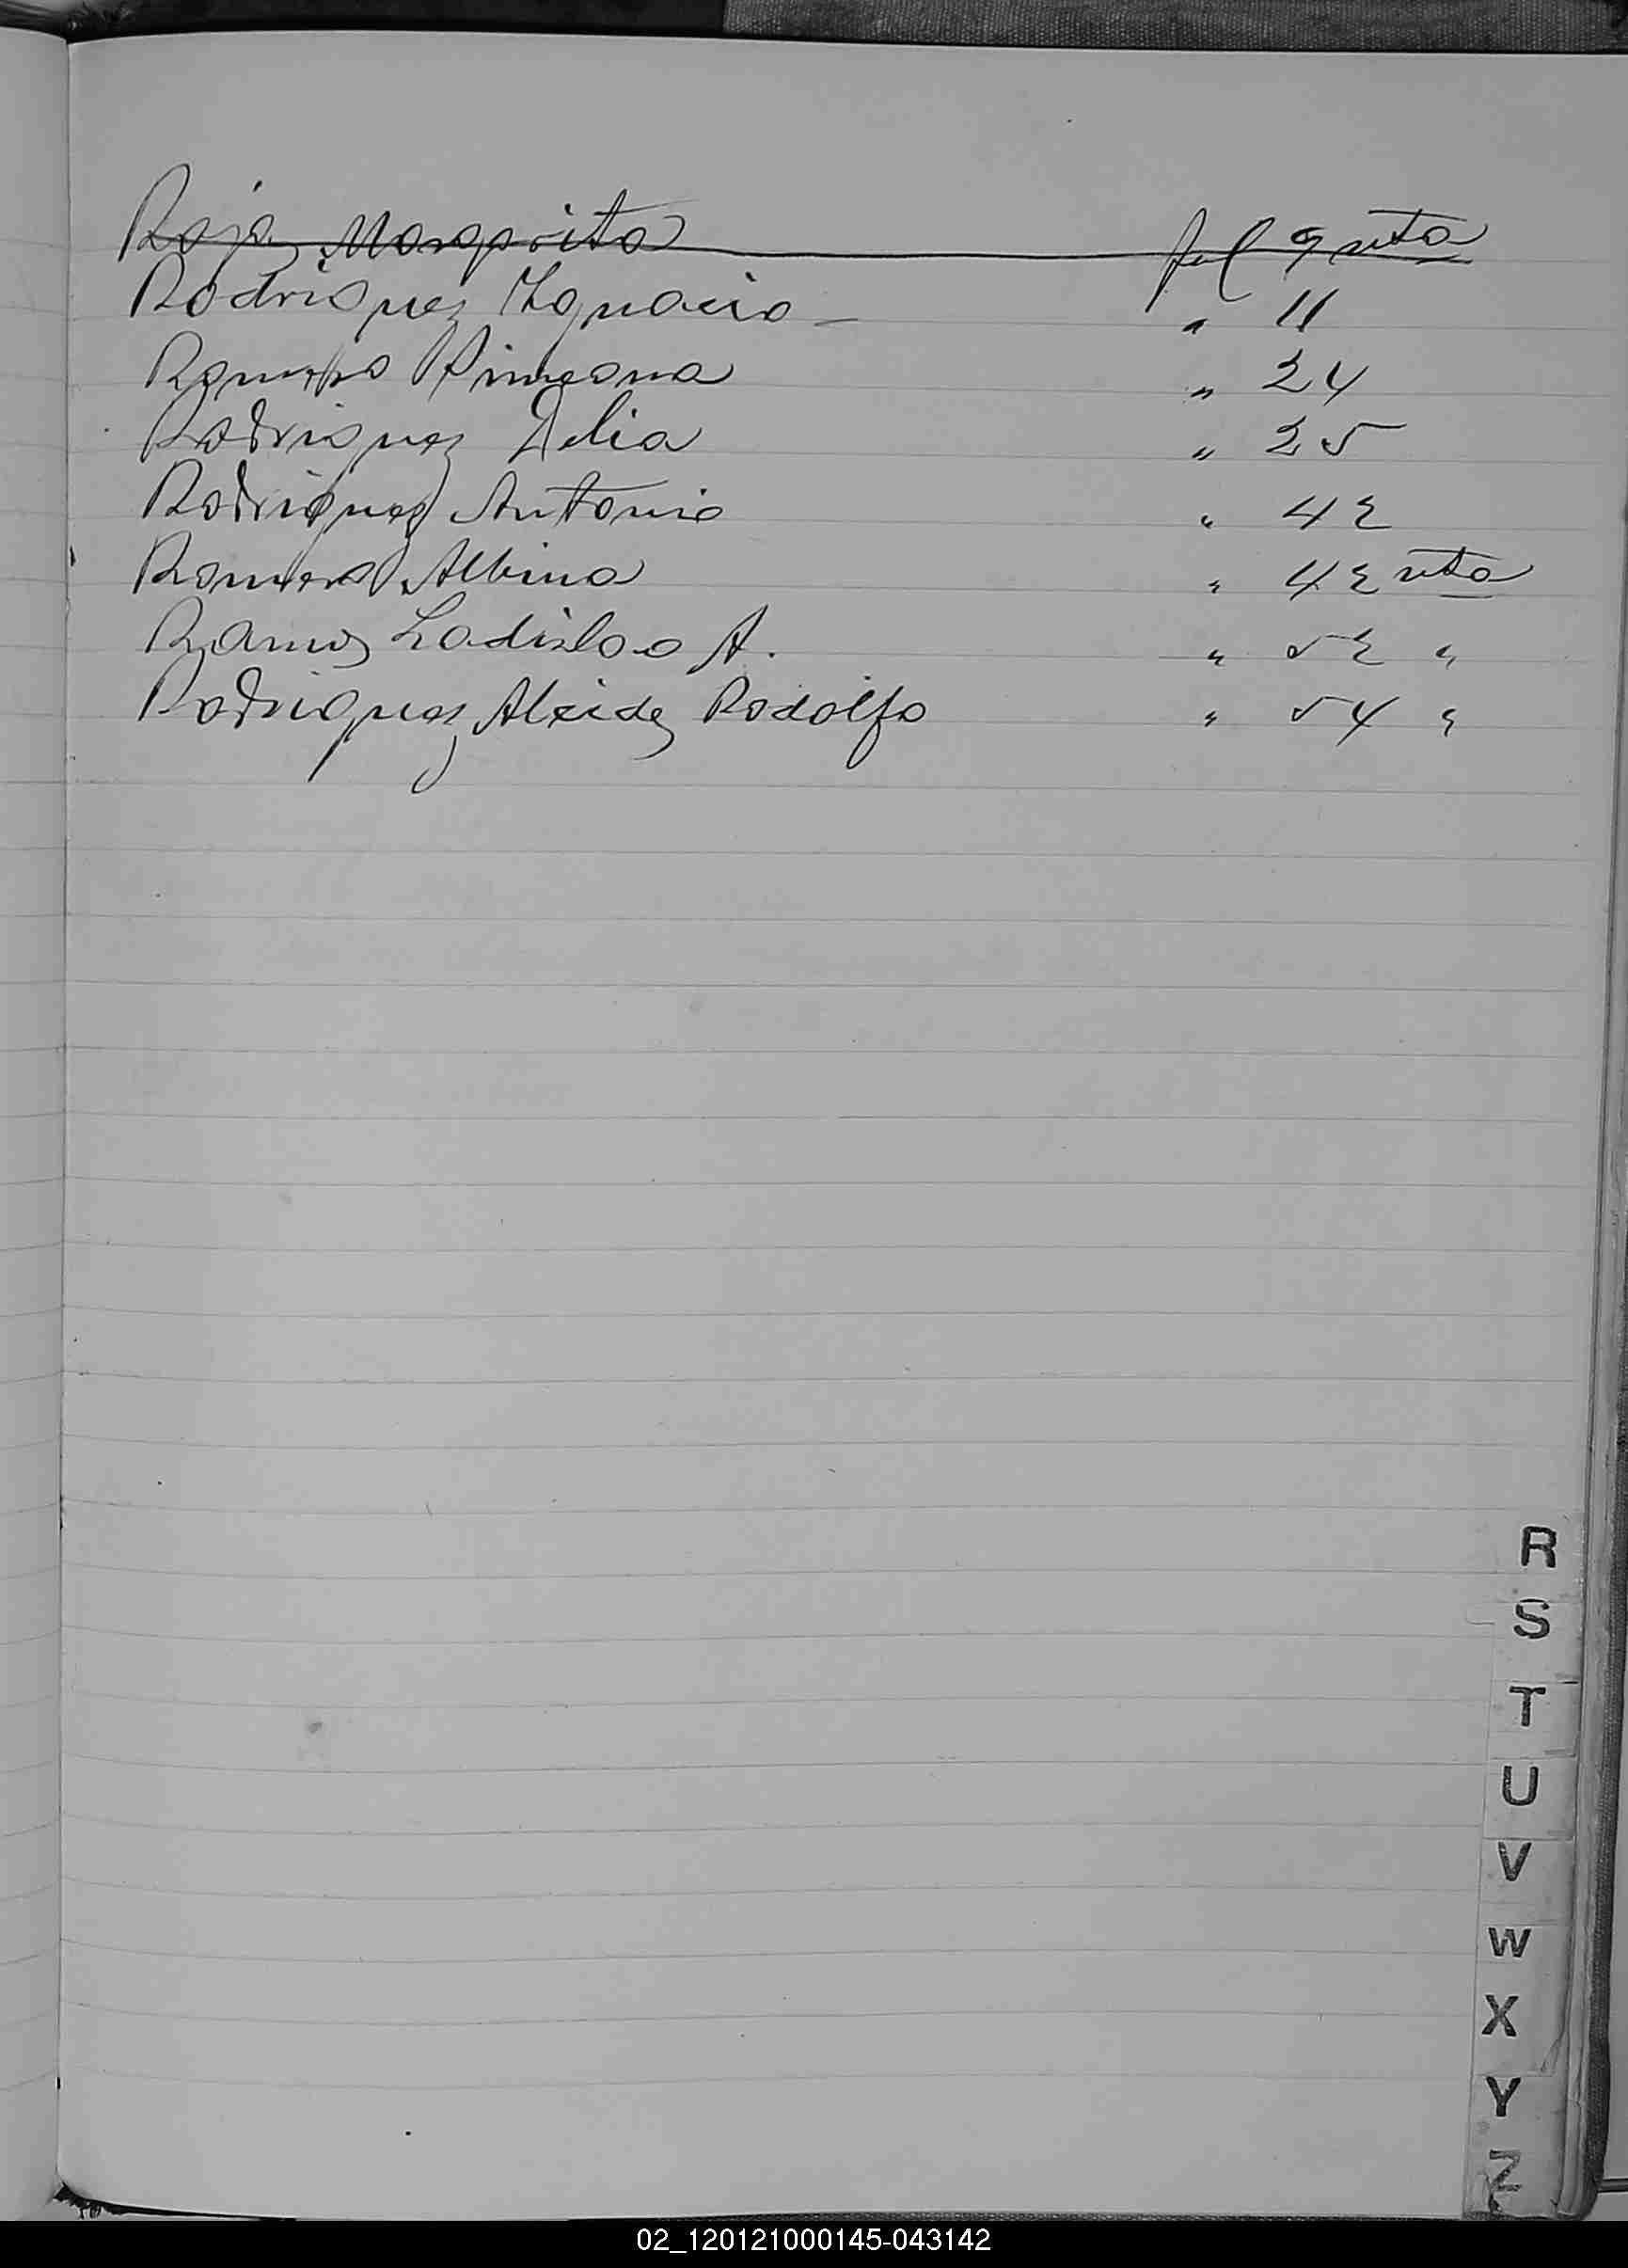 Rojas Margarita fol 9 vta
Rodriguez Ygnacio „ 11
Romero „ 24
Rodriguez Delia „ 25
Rodriguez Antonio „ 42
Romero Albina „ 42 vta
Ramos Ladislao A. „ 52 „
Rodriguez Alcides Rodolfo „ 54 „
R
S
T
U
V
W
X
Y
Z
02_120121000145-043142